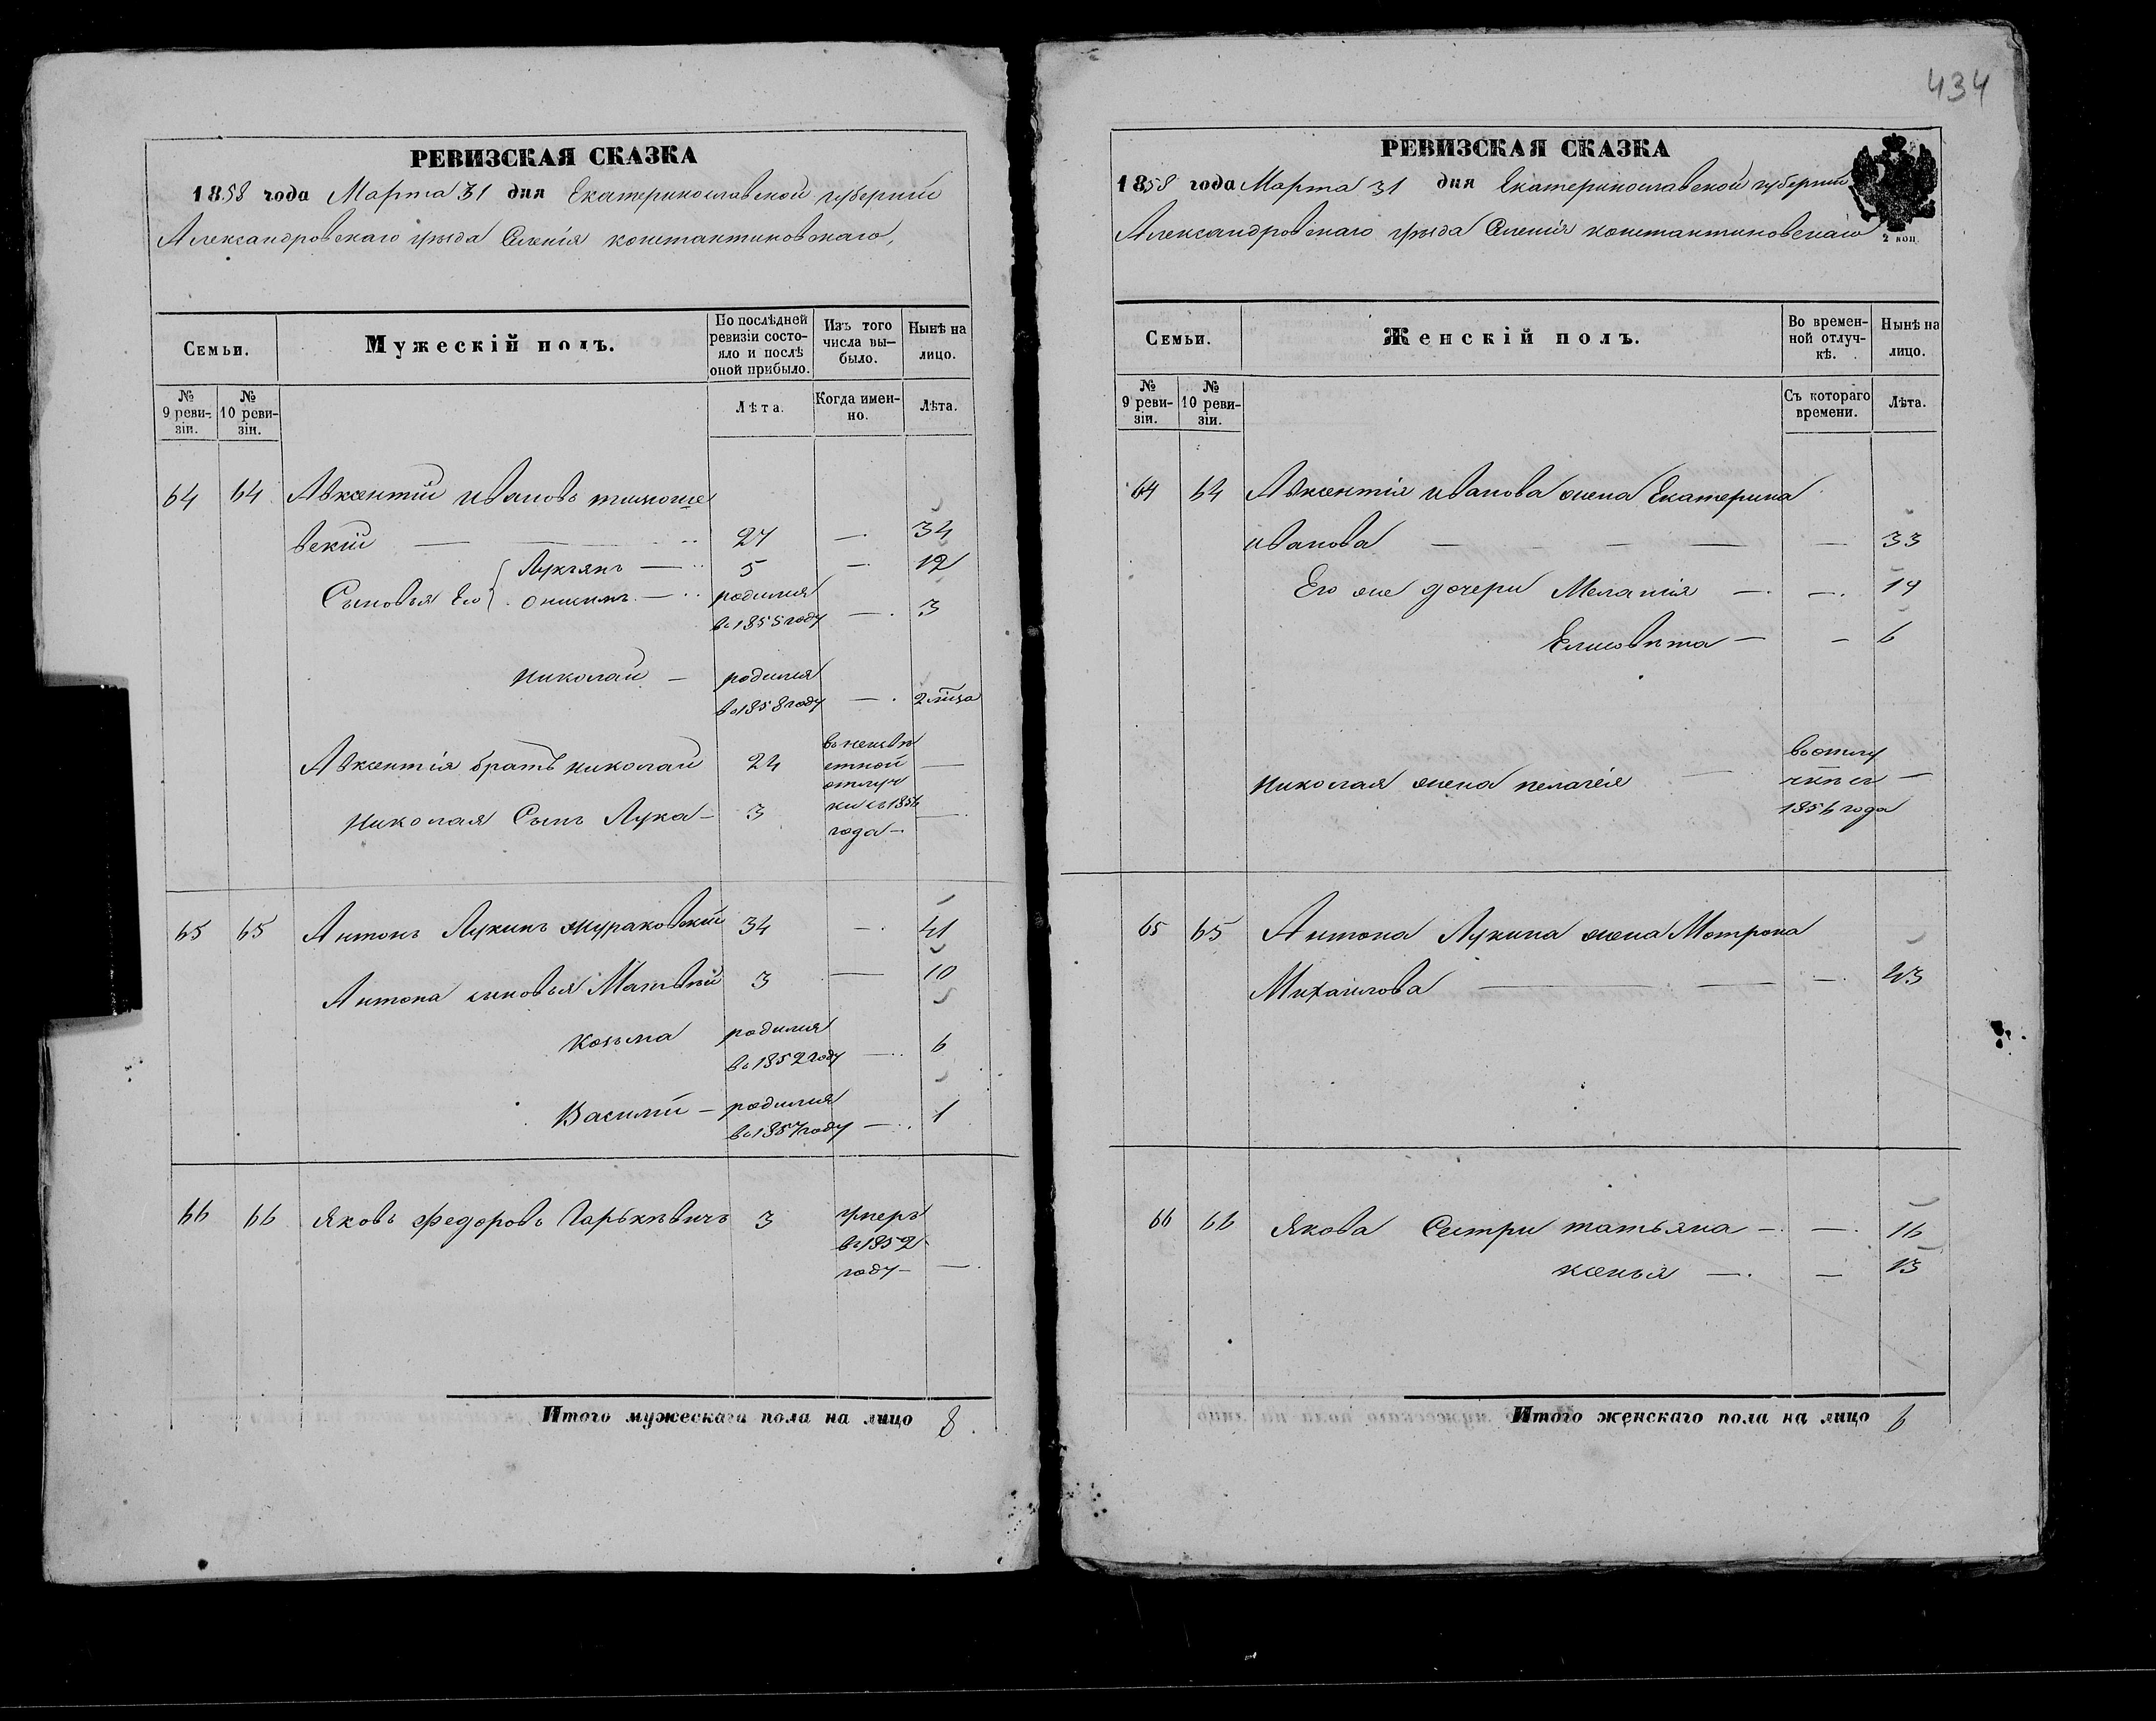 434
РЕВИЗСКАЯ СКАЗКА
1858 года Марта 31 дня Екатеринославской губернии
Александровскаго уѣзда Селенія константиновскаго,
Семьи.
Мужескій полъ.
По послѣдней ревизіи состояло и послѣ оной прибыло.
Изъ того числа выбыло.
Нынѣ на лицо.
№ 9 ревизіи.
№ 10 ревизіи.
Лѣта.
Когда именно.
Лѣта.
64 64 Авксентій ивановъ тимоше
вскій 27 — 34
Сыновья Его Лукъянъ — 5 — 12
Онисимъ — родился
въ 1855 году — 3
николай — родился
въ 1858 году — 2 мѣца
Авксентія братъ николай 24 въ неизвѣ
стной —
отлуч
николая Сынъ Лука — 3 ки съ 1856 —
года —
65 65 Антонъ Лукинъ жураковскій 34 — 41
Антона сыновья Матвѣй 3 — 10
козьма родился
въ 1852 году — 6
Василій — родился
въ 1857 году — 1
66 66 Яковъ Федоровъ 3 умеръ
въ 1852
году — —
Итого мужескаго пола на лицо 8.
РЕВИЗСКАЯ СКАЗКА
1858 года Марта 31 дня Екатеринославской губерніи
Александровскаго уѣзда Селенія константиновскаго
2 коп.
Семьи.
Женскій полъ.
Во временной отлучкѣ.
Нынѣ на лицо.
№ 9 ревизіи.
№ 10 ревизіи.
Съ котораго времени.
Лѣта.
64 64 Авксентія иванова жена Екатерина
иванова — — 33
Его же дочери Меланія — — 14
Елисовѣта — — 6
въ отлу
николая жена пелагея — чкѣ съ —
1856 года
65 65 Антона Лукина жена Мотрона
Михаилова — — 43
66 66 Якова Сестри татьяна — — 16
ксенья — — 13
Итого женскаго пола на лицо 6